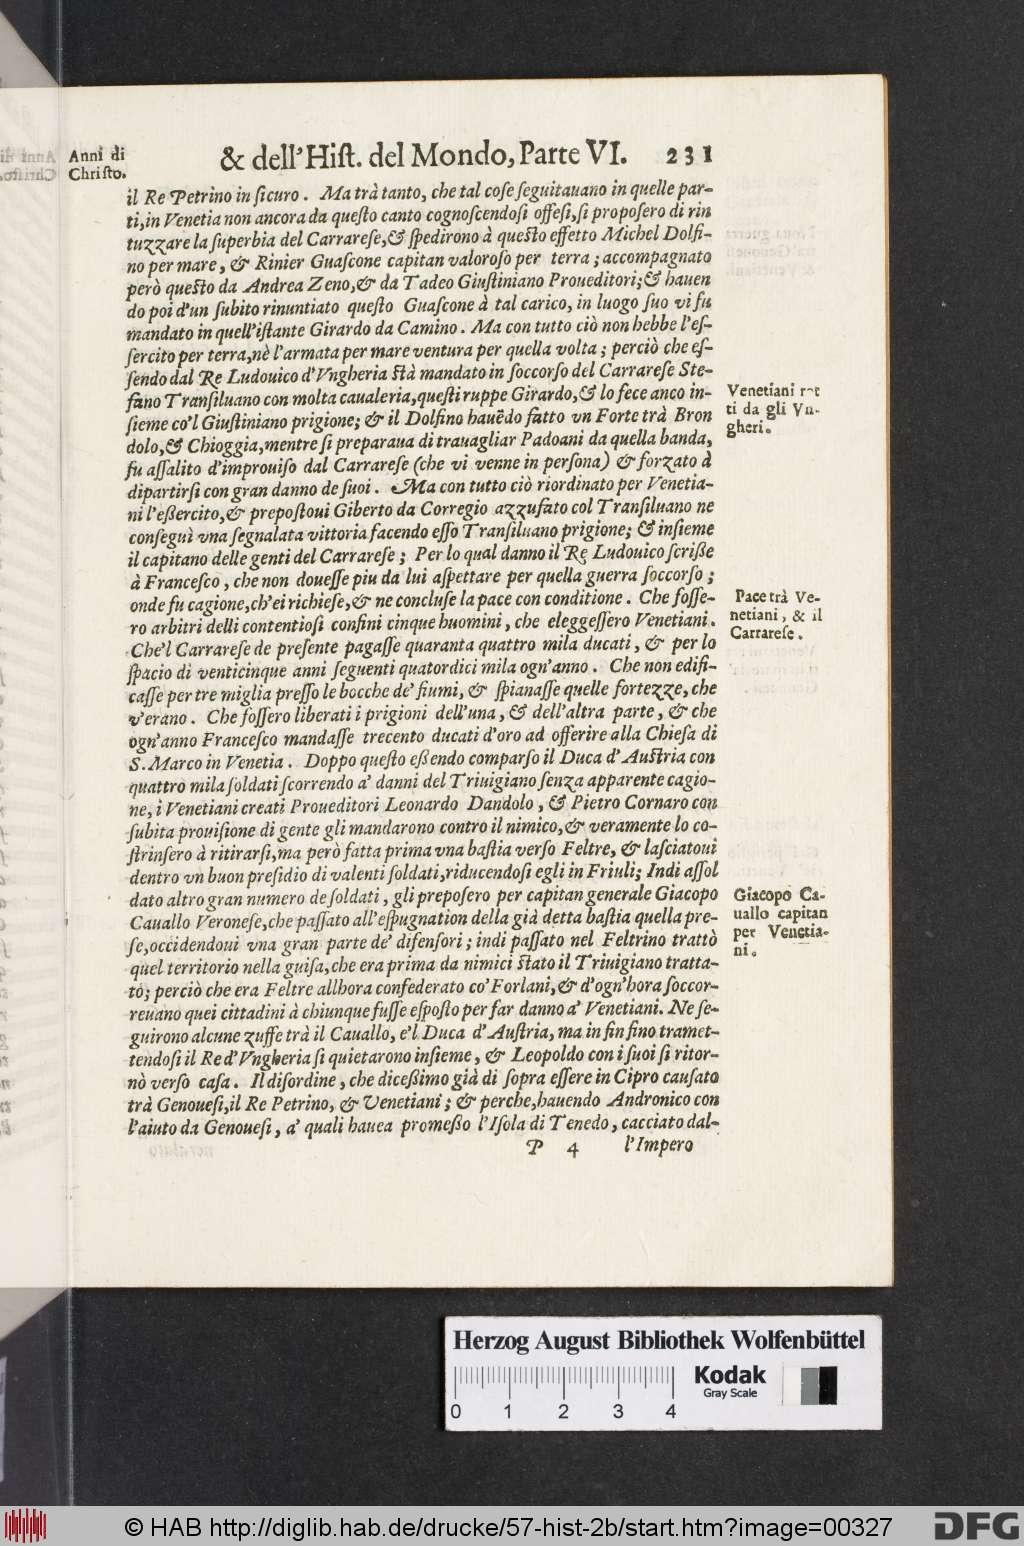 Anni di
Christo.
& dell'Hiſt. del Mondo, Parte VI. 231
il Re Petrino in ſicuro. Ma trà tanto, che tal coſe ſeguitauano in quelle par-
ti, in Venetia non ancora da queſto canto cognoſcendoſi offeſi, ſi propoſero di rin
tuzzare la ſuperbia del Carrareſe, & ſpedirono à queſto effetto Michel Dolfi-
no per mare, & Rinier Guaſcone capitan valoroſo per terra; accompagnato
però queſto da Andrea Zeno, & da Tadeo Giuſtiniano Proueditori; & hauen
do poi d'un ſubito rinuntiato queſto Guaſcone à tal carico, in luogo ſuo vi fu
mandato in quell'iſtante Girardo da Camino. Ma con tutto ciò non hebbe l'eſ-
ſercito per terra, nè l'armata per mare ventura per quella volta; perciò che eſ-
ſendo dal Re Ludouico d'Vngheria ſtà mandato in ſoccorſo del Carrareſe Ste-
fano Tranſiluano con molta caualeria, queſti ruppe Girardo, & lo fece anco in-
ſieme co'l Giuſtiniano prigione; & il Dolfino hauēdo fatto vn Forte trà Bron
dolo, & Chioggia, mentre ſi preparaua di trauagliar Padoani da quella banda,
fu aſſalito d'improuiſo dal Carrareſe (che vi venne in perſona) & forzato à
dipartirſi con gran danno de ſuoi. Ma con tutto ciò riordinato per Venetia-
ni l'eßercito, & prepoſtoui Giberto da Corregio azzufato col Tranſiluano ne
conſeguì vna ſegnalata vittoria facendo eſſo Tranſiluano prigione; & inſieme
il capitano delle genti del Carrareſe; Per lo qual danno il Re Ludouico ſcriße
à Franceſco, che non doueſſe piu da lui aſpettare per quella guerra ſoccorſo;
onde fu cagione, ch'ei richieſe, & ne concluſe la pace con conditione. Che foſſe-
ro arbitri delli contentioſi confini cinque huomini, che eleggeſſero Venetiani.
Che'l Carrareſe de preſente pagaſſe quaranta quattro mila ducati, & per lo
ſpacio di venticinque anni ſeguenti quatordici mila ogn'anno. Che non edifi-
caſſe per tre miglia preſſo le bocche de' fiumi, & ſpianaſſe quelle fortezze, che
v'erano. Che foſſero liberati i prigioni dell'una, & dell'altra parte, & che
ogn'anno Franceſco mandaſſe trecento ducati d'oro ad offerire alla Chieſa di
S. Marco in Venetia. Doppo queſto eßendo comparſo il Duca d'Auſtria con
quattro mila ſoldati ſcorrendo a' danni del Triuigiano ſenza apparente cagio-
ne, i Venetiani creati Proueditori Leonardo Dandolo, & Pietro Cornaro con
ſubita prouiſione di gente gli mandarono contro il nimico, & veramente lo co-
ſtrinſero à ritirarſi, ma però fatta prima vna baſtia verſo Feltre, & laſciatoui
dentro vn buon preſidio di valenti ſoldati, riducendoſi egli in Friuli; Indi aſſol
dato altro gran numero de ſoldati, gli prepoſero per capitan generale Giacopo
Cauallo Veroneſe, che paſſato all'eſpugnation della già detta baſtia quella pre-
ſe, occidendoui vna gran parte de' difenſori; indi paſſato nel Feltrino trattò
quel territorio nella guiſa, che era prima da nimici ſtato il Triuigiano tratta-
to; perciò che era Feltre allhora confederato co' Forlani, & d'ogn'hora ſoccor-
reuano quei cittadini à chiunque fuſſe eſpoſto per far danno a' Venetiani. Ne ſe-
guirono alcune zuffe trà il Cauallo, e'l Duca d'Auſtria, ma in fin fino tramet-
tendoſi il Re d'Vngheria ſi quietarono inſieme, & Leopoldo con i ſuoi ſi ritor-
nò verſo caſa. Il diſordine, che diceßimo già di ſopra eſſere in Cipro cauſato
trà Genoueſi, il Re Petrino, & Venetiani; & perche, hauendo Andronico con
l'aiuto da Genoueſi, a' quali hauea promeßo l'Iſola di Tenedo, cacciato dal-
P 4 l'Impero
Venetiani rot
ti da gli Vn-
gheri.
Pace trà Ve-
netiani, & il
Carrareſe.
Giacopo Ca-
uallo capitan
per Venetia-
ni.
Herzog August Bibliothek Wolfenbüttel
Kodak
Gray Scale
0 1 2 3 4
© HAB http://diglib.hab.de/drucke/57-hist-2b/start.htm?image=00327
DFG